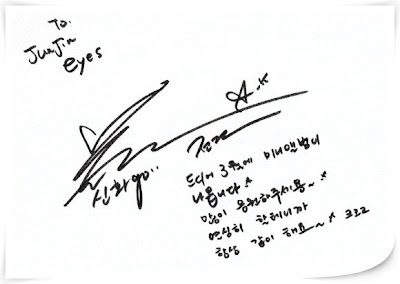 To.
JunJin
eyes
신화
전진
드디어 3月에 미니앨범이
나옵니다
많이 응원해주세용~
열심히 할테니까
항상 같이 해요~ ㅋㅋㅋ